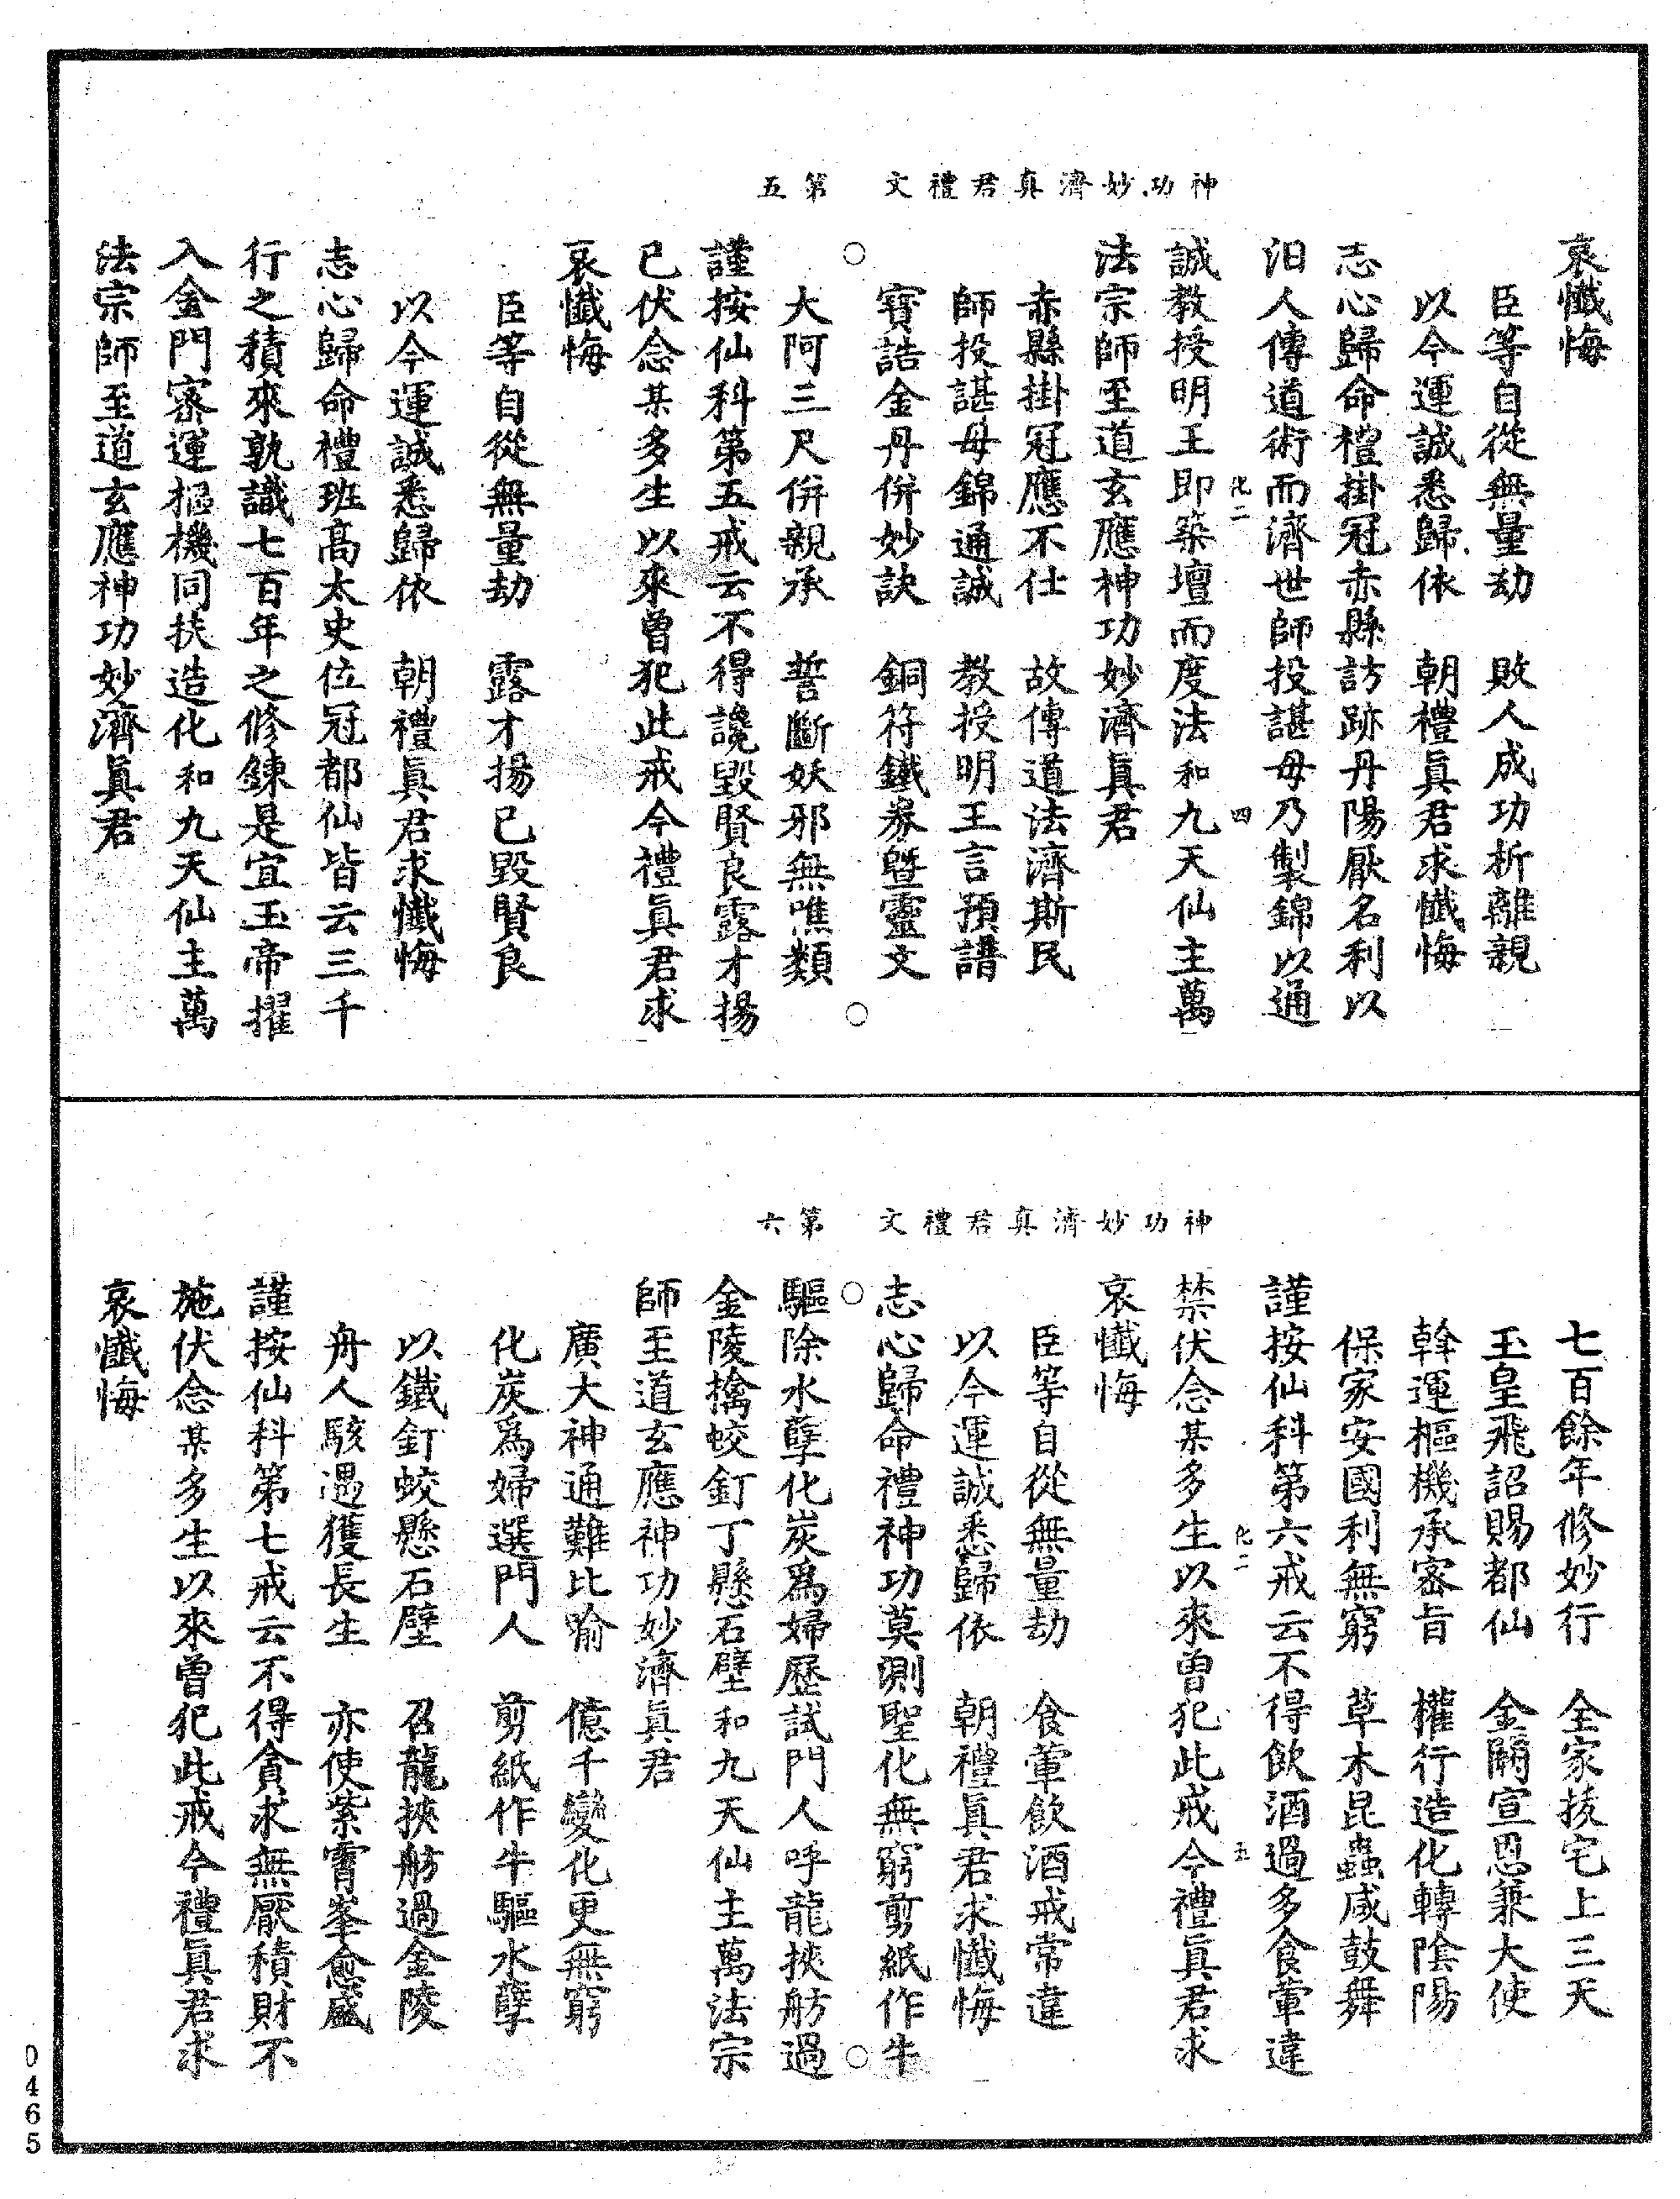 神功妙濟真君禮文　第五
哀懺悔
臣等自從無量劫　敗人成功析離親
以今運誠悉歸依　朝禮眞君求懺悔
志心歸命禮掛冠赤縣訪跡丹陽厭名利以
汩人傳道術而濟世師投諶母乃製錦以通
化二　四
誠教授明王即築壇而度法和九天仙主萬
法宗師至道玄應神功妙濟眞君
赤縣掛冠應不仕　故傳道法濟斯民
師投諶母錦通誠　教授明王言預譜
寶誥金丹併妙訣　銅符鐵券曁靈文
大阿三尺併親承　誓斷妖邪無噍類
謹按仙科第五戒云不得讒毀賢良露才揚
已伏念某多生以來曾犯此戒今禮眞君求
哀懺悔
臣等自從無量劫　露才揚已毀賢良
以今運誠悉歸依　朝禮眞君求懺悔
志心歸命禮班高太史位冠都仙皆云三千
行之積來孰識七百年之修鍊是宜玉帝擢
入金門密運樞機同扶造化和九天仙主萬
法宗師至道玄應神功妙濟眞君
神功妙濟真君禮文　第六
七百餘年修妙行　全家拔宅上三天
玉皇飛詔賜都仙　金闕宣恩兼大使
斡運樞機承密旨　權行造化轉陰陽
保家安國利無窮　草木昆蟲咸鼓舞
謹按仙科第六戒云不得飲酒過多食葷違
化二　五
禁伏念某多生以來曾犯此戒今禮眞君求
哀懺悔
臣等自從無量劫　食葷飲酒戒常違
以今運誠悉歸依　朝禮眞君求懺悔
志心歸命禮神功莫測聖化無窮剪紙作牛
驅除水孽化炭爲婦歷試門人呼龍挾舫過
金陵擒蛟釘丁懸石壁和九天仙主萬法宗
師至道玄應神功妙濟眞君
廣大神通難比喻　億千變化更無窮
化炭爲婦選門人　剪紙作牛驅水孽
以鐵釘蛟懸石壁　召龍挾舫過金陵
舟人駭遇獲長生　亦使紫霄峯愈盛
謹按仙科第七戒云不得貪求無厭積財不
施伏念某多生以來曾犯此戒今禮眞君求
哀懺悔
0465